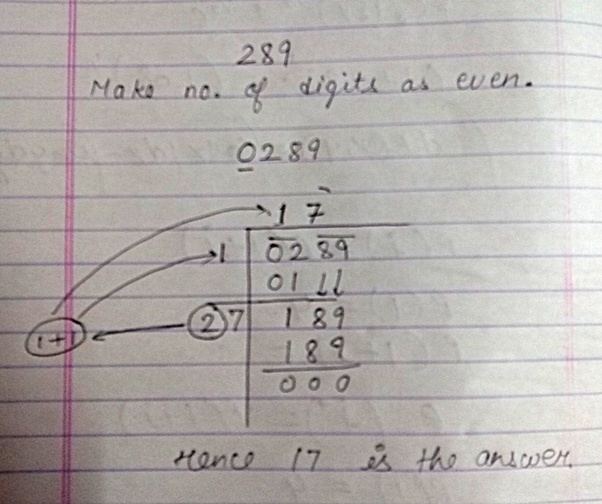 289
Make no. of digits as even.
0289
17
1 02 89
01 ↓↓
1+1 27 189
189
000
Hence 17 is the answer.